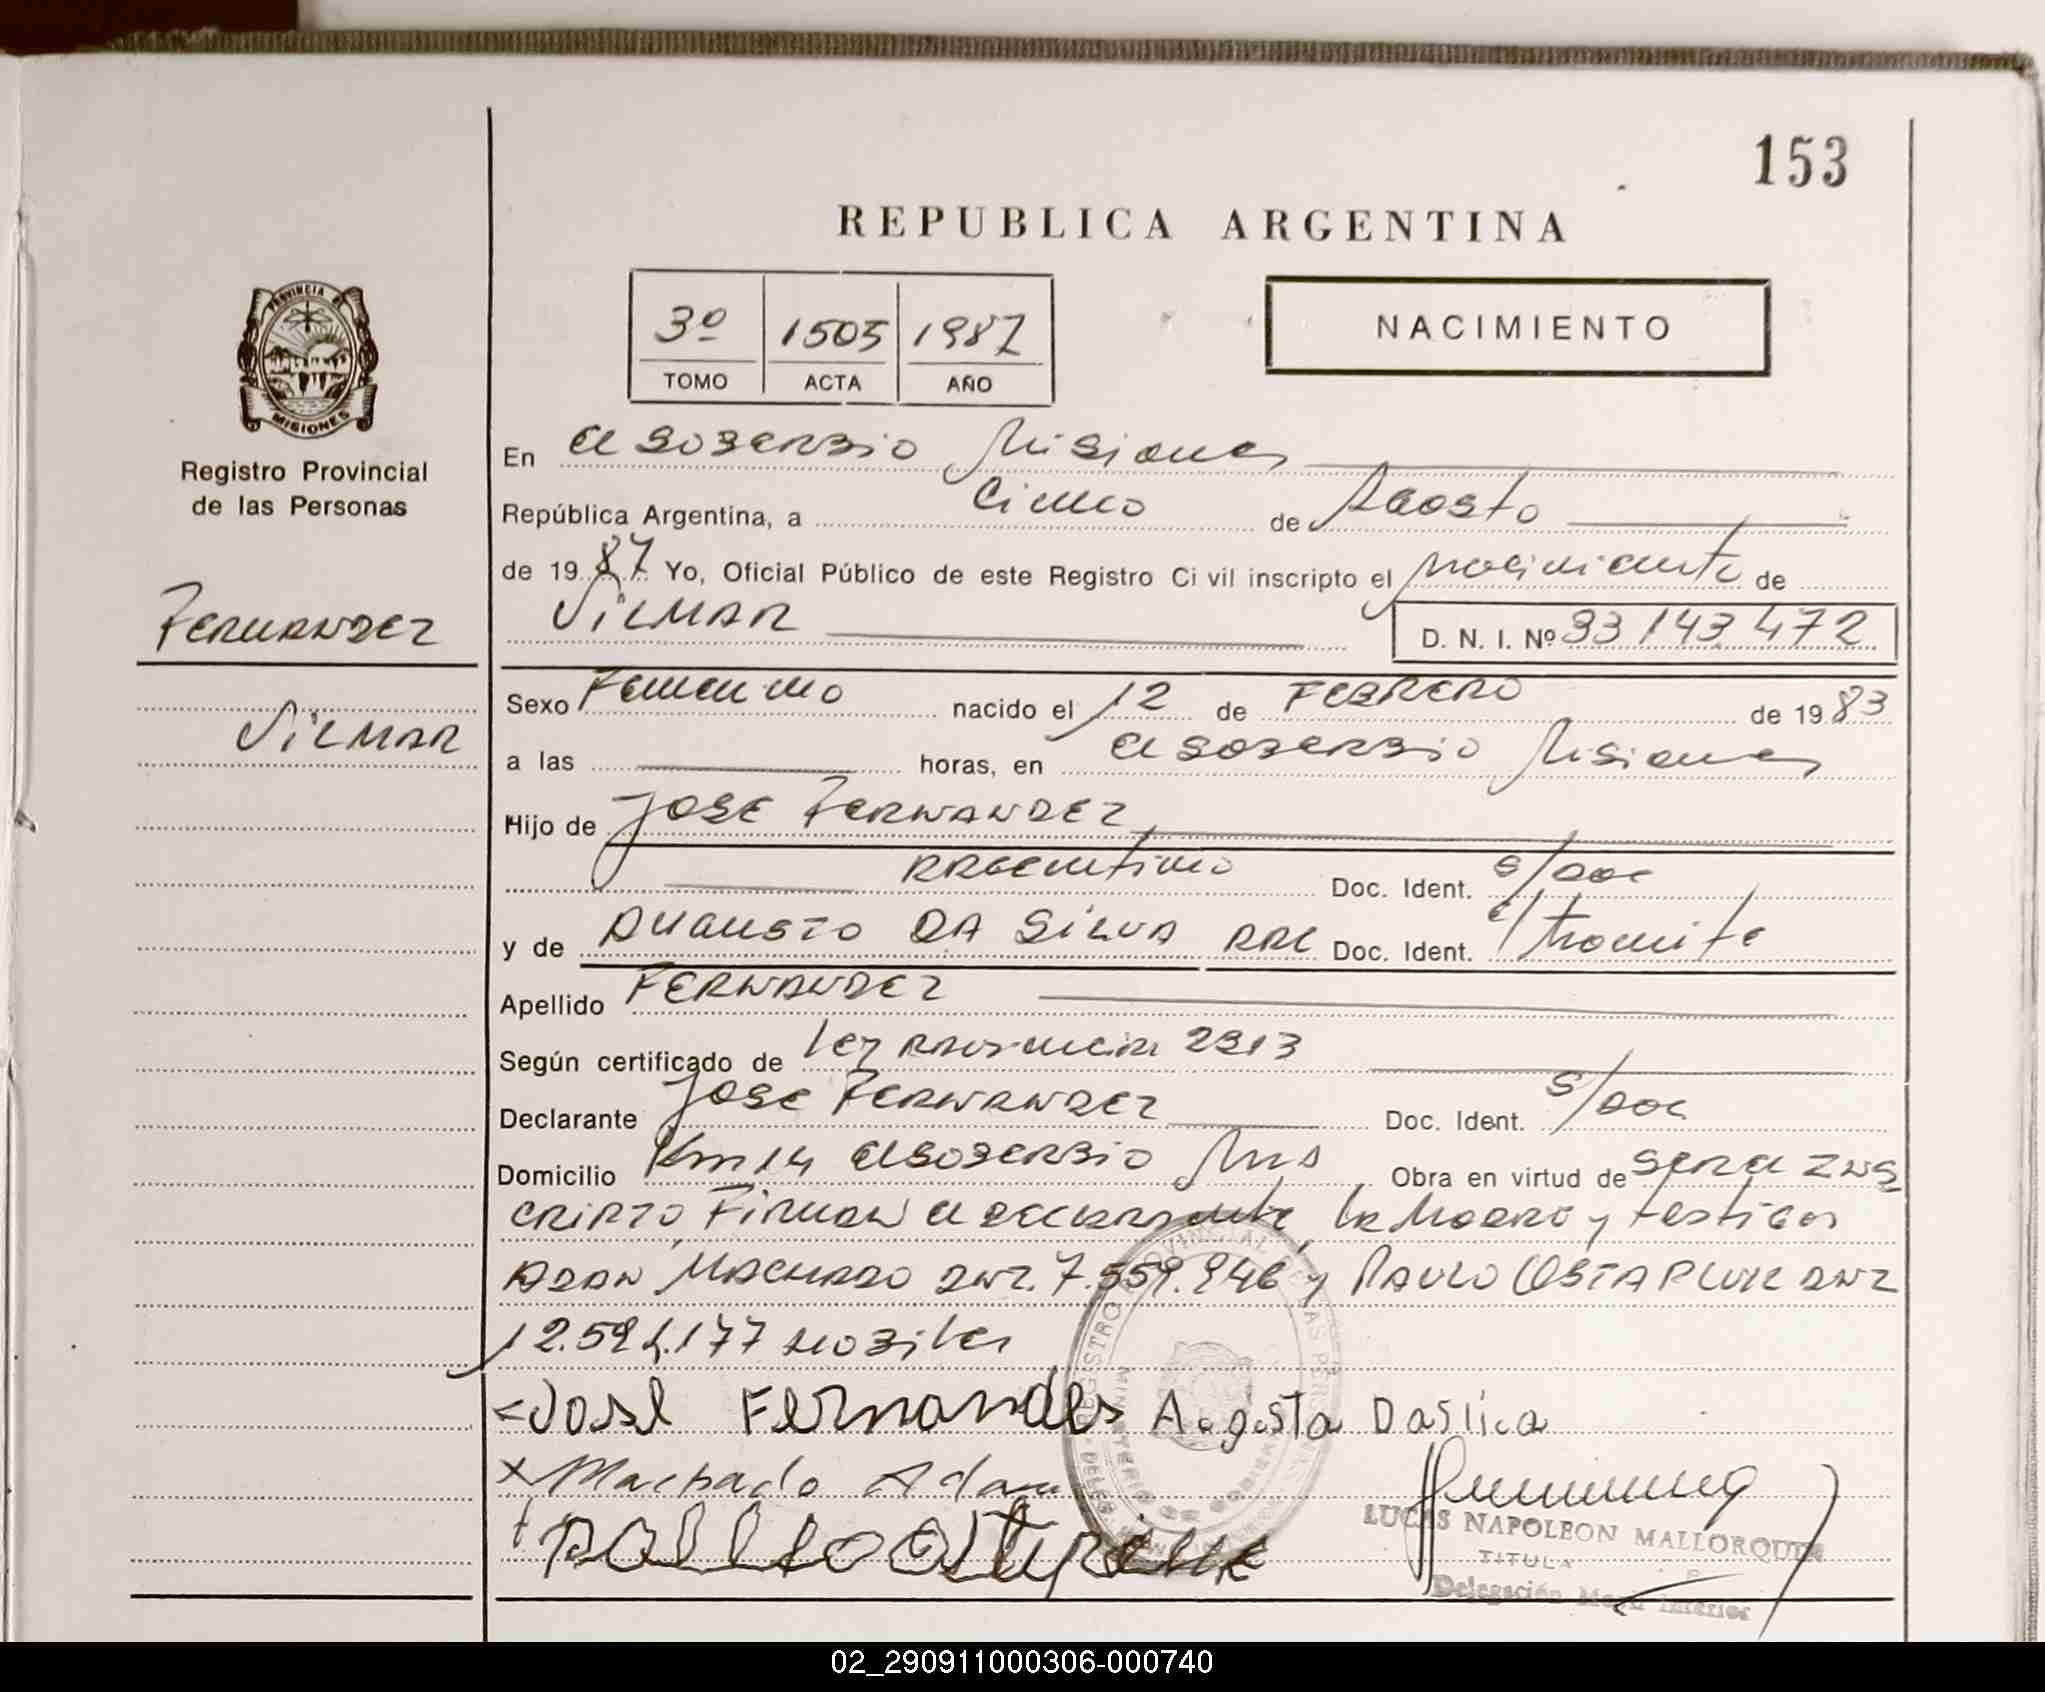 153
REPUBLICA ARGENTINA
3º 1505 1987
TOMO ACTA AÑO
NACIMIENTO
PROVINCIA DE
MISIONES
Registro Provincial
de las Personas
FERNANDEZ
VILMAR
En El SOBERBIO Misiones
República Argentina, a Cinco de Agosto
de 1987 Yo, Oficial Público de este Registro Civil inscripto el nacimiento de
VILMAR D. N. I. Nº 33 143 472
Sexo Femenino nacido el 12 de FEBRERO de 1983
a las horas, en El SOBERBIO Misiones
Hijo de JOSE FERNANDEZ
ARGentino Doc. Ident. S/DOC
y de AUGUSTO DA SILVA ARG Doc. Ident. e/tramite
Apellido FERNANDEZ
Según certificado de ley Provincial 2313
Declarante JOSE FERNANDEZ Doc. Ident. S/DOC
Domicilio Km 14 El SOBERBIO Mns Obra en virtud de
CRIPTO, Firman el DECLARANTE, la Madre y testigos
ADAN MACHADO DNI. 7.559.946 y PAULO OSTAPLUK DNI
12.594.177
José Fernandes Augosta Daslica
x Machado Adan
LUCAS NAPOLEON MALLORQUIN
TITULA
Delegación
02_290911000306-000740